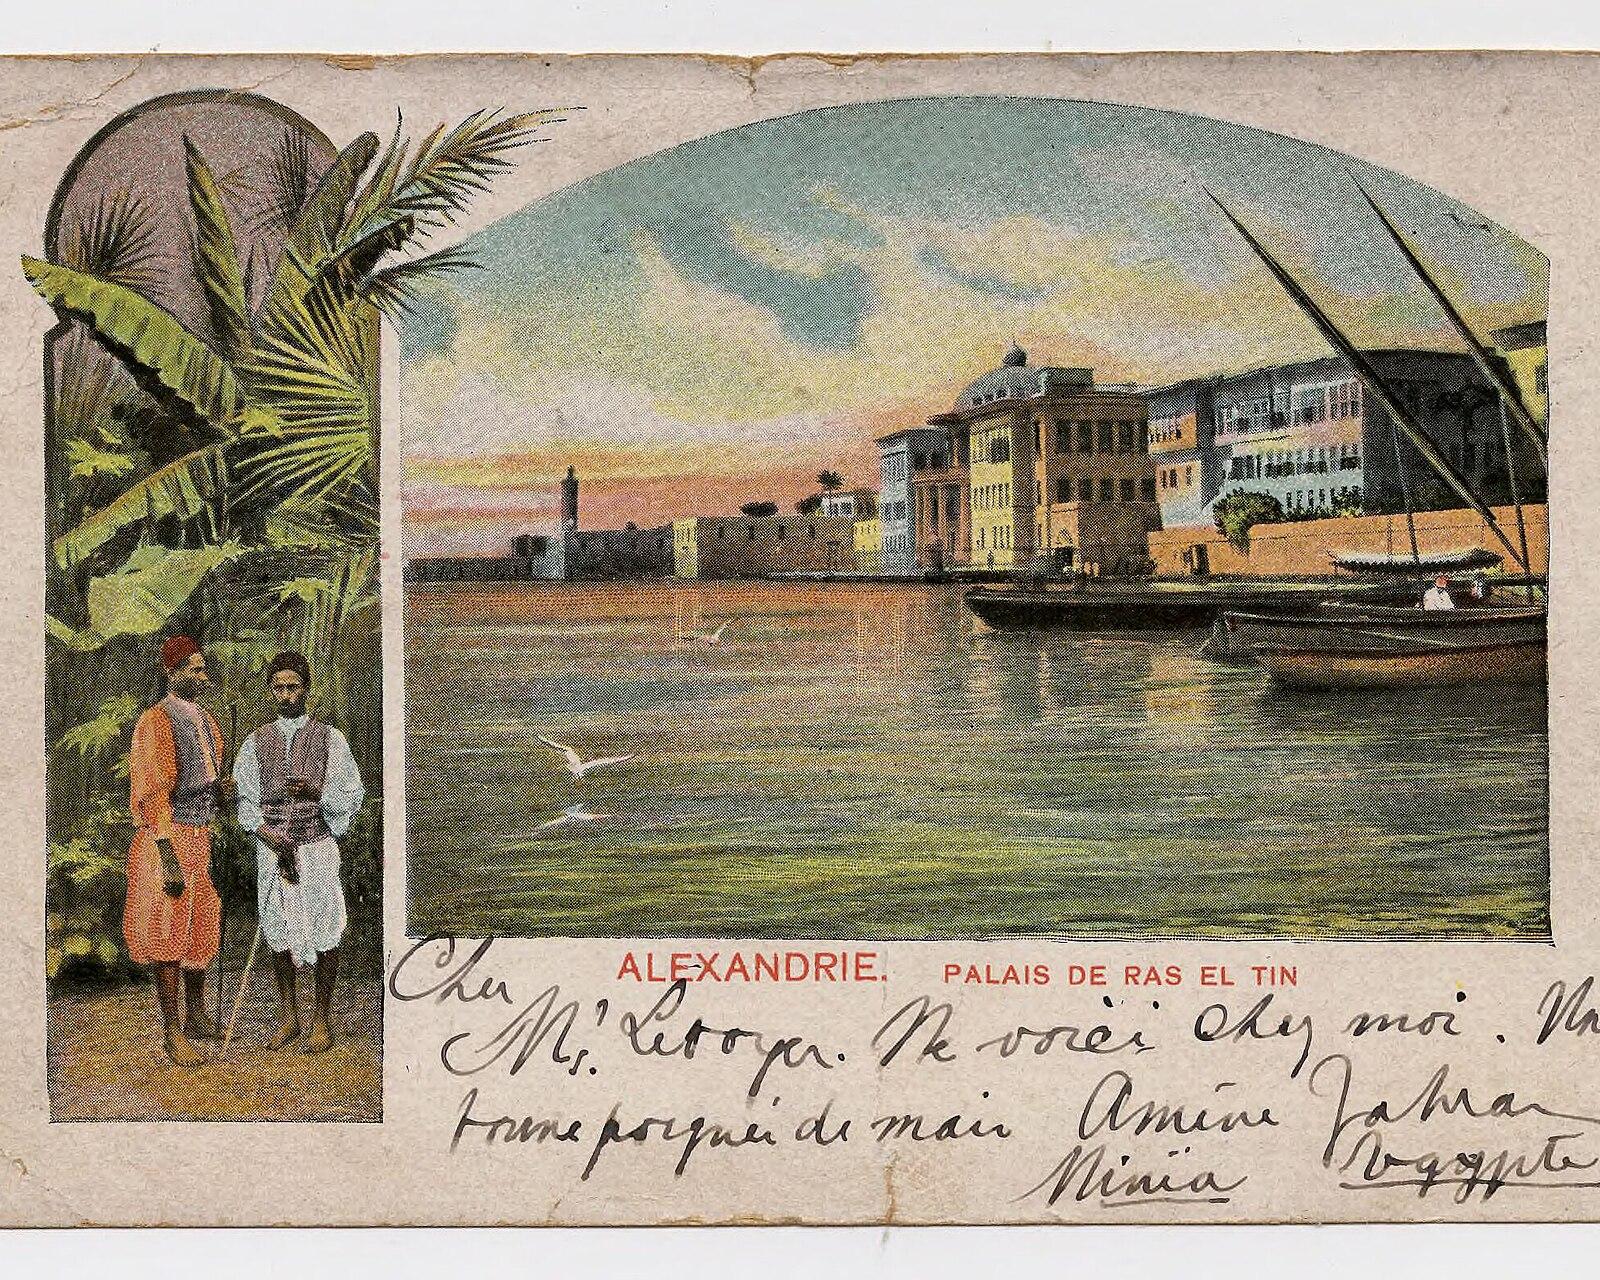 ALEXANDRIE. PALAIS DE RAS EL TIN
Cher
Mr. Leroyer. Me voici chez moi. Un
bonne poignei de main Amine Zahran
Miniä Egypte